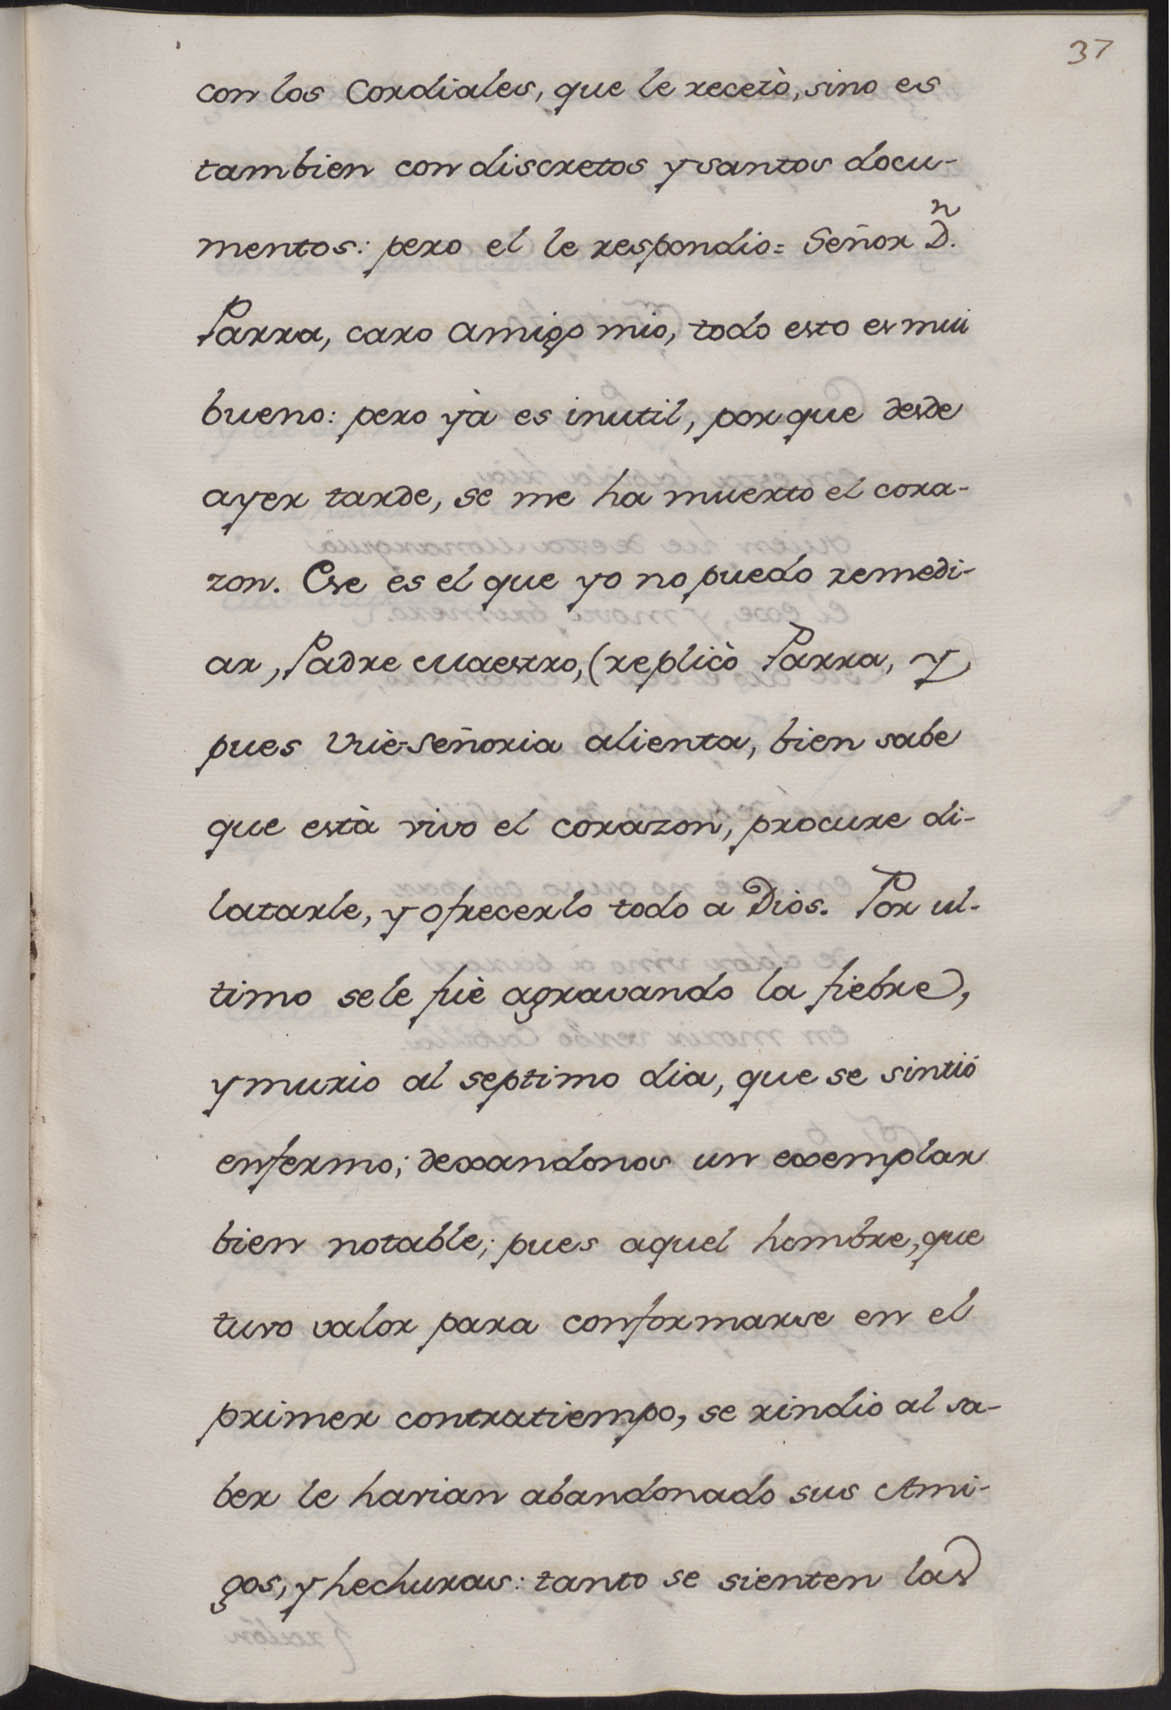 37
con los Cordiales, que le recetò, sino es
tambien con discretos y santos docu-
mentos: pero el le respondio= Señor D.ⁿ
Parra, caro amigo mio, todo esto es mui
bueno: pero yà es inutil, por que desde
ayer tarde, se me ha muerto el cora-
zon. Ese es el que yo no puedo remedi-
ar, Padre Maestro, (replicò Parra, y
pues Vuè-Señoria alienta, bien sabe
que està vivo el corazon, procure di-
latarle, y ofrecerlo todo a Dios. Por ul-
timo se le fuè agravando la fiebre,
y murio al septimo dia, que se sintió
enfermo; dexandonos un exemplar
bien notable; pues aquel hombre, que
tuvo valor para conformarse en el
primer contratiempo, se rindio al sa-
ber le havian abandonado sus Ami-
gos, y hechuras: tanto se sienten las